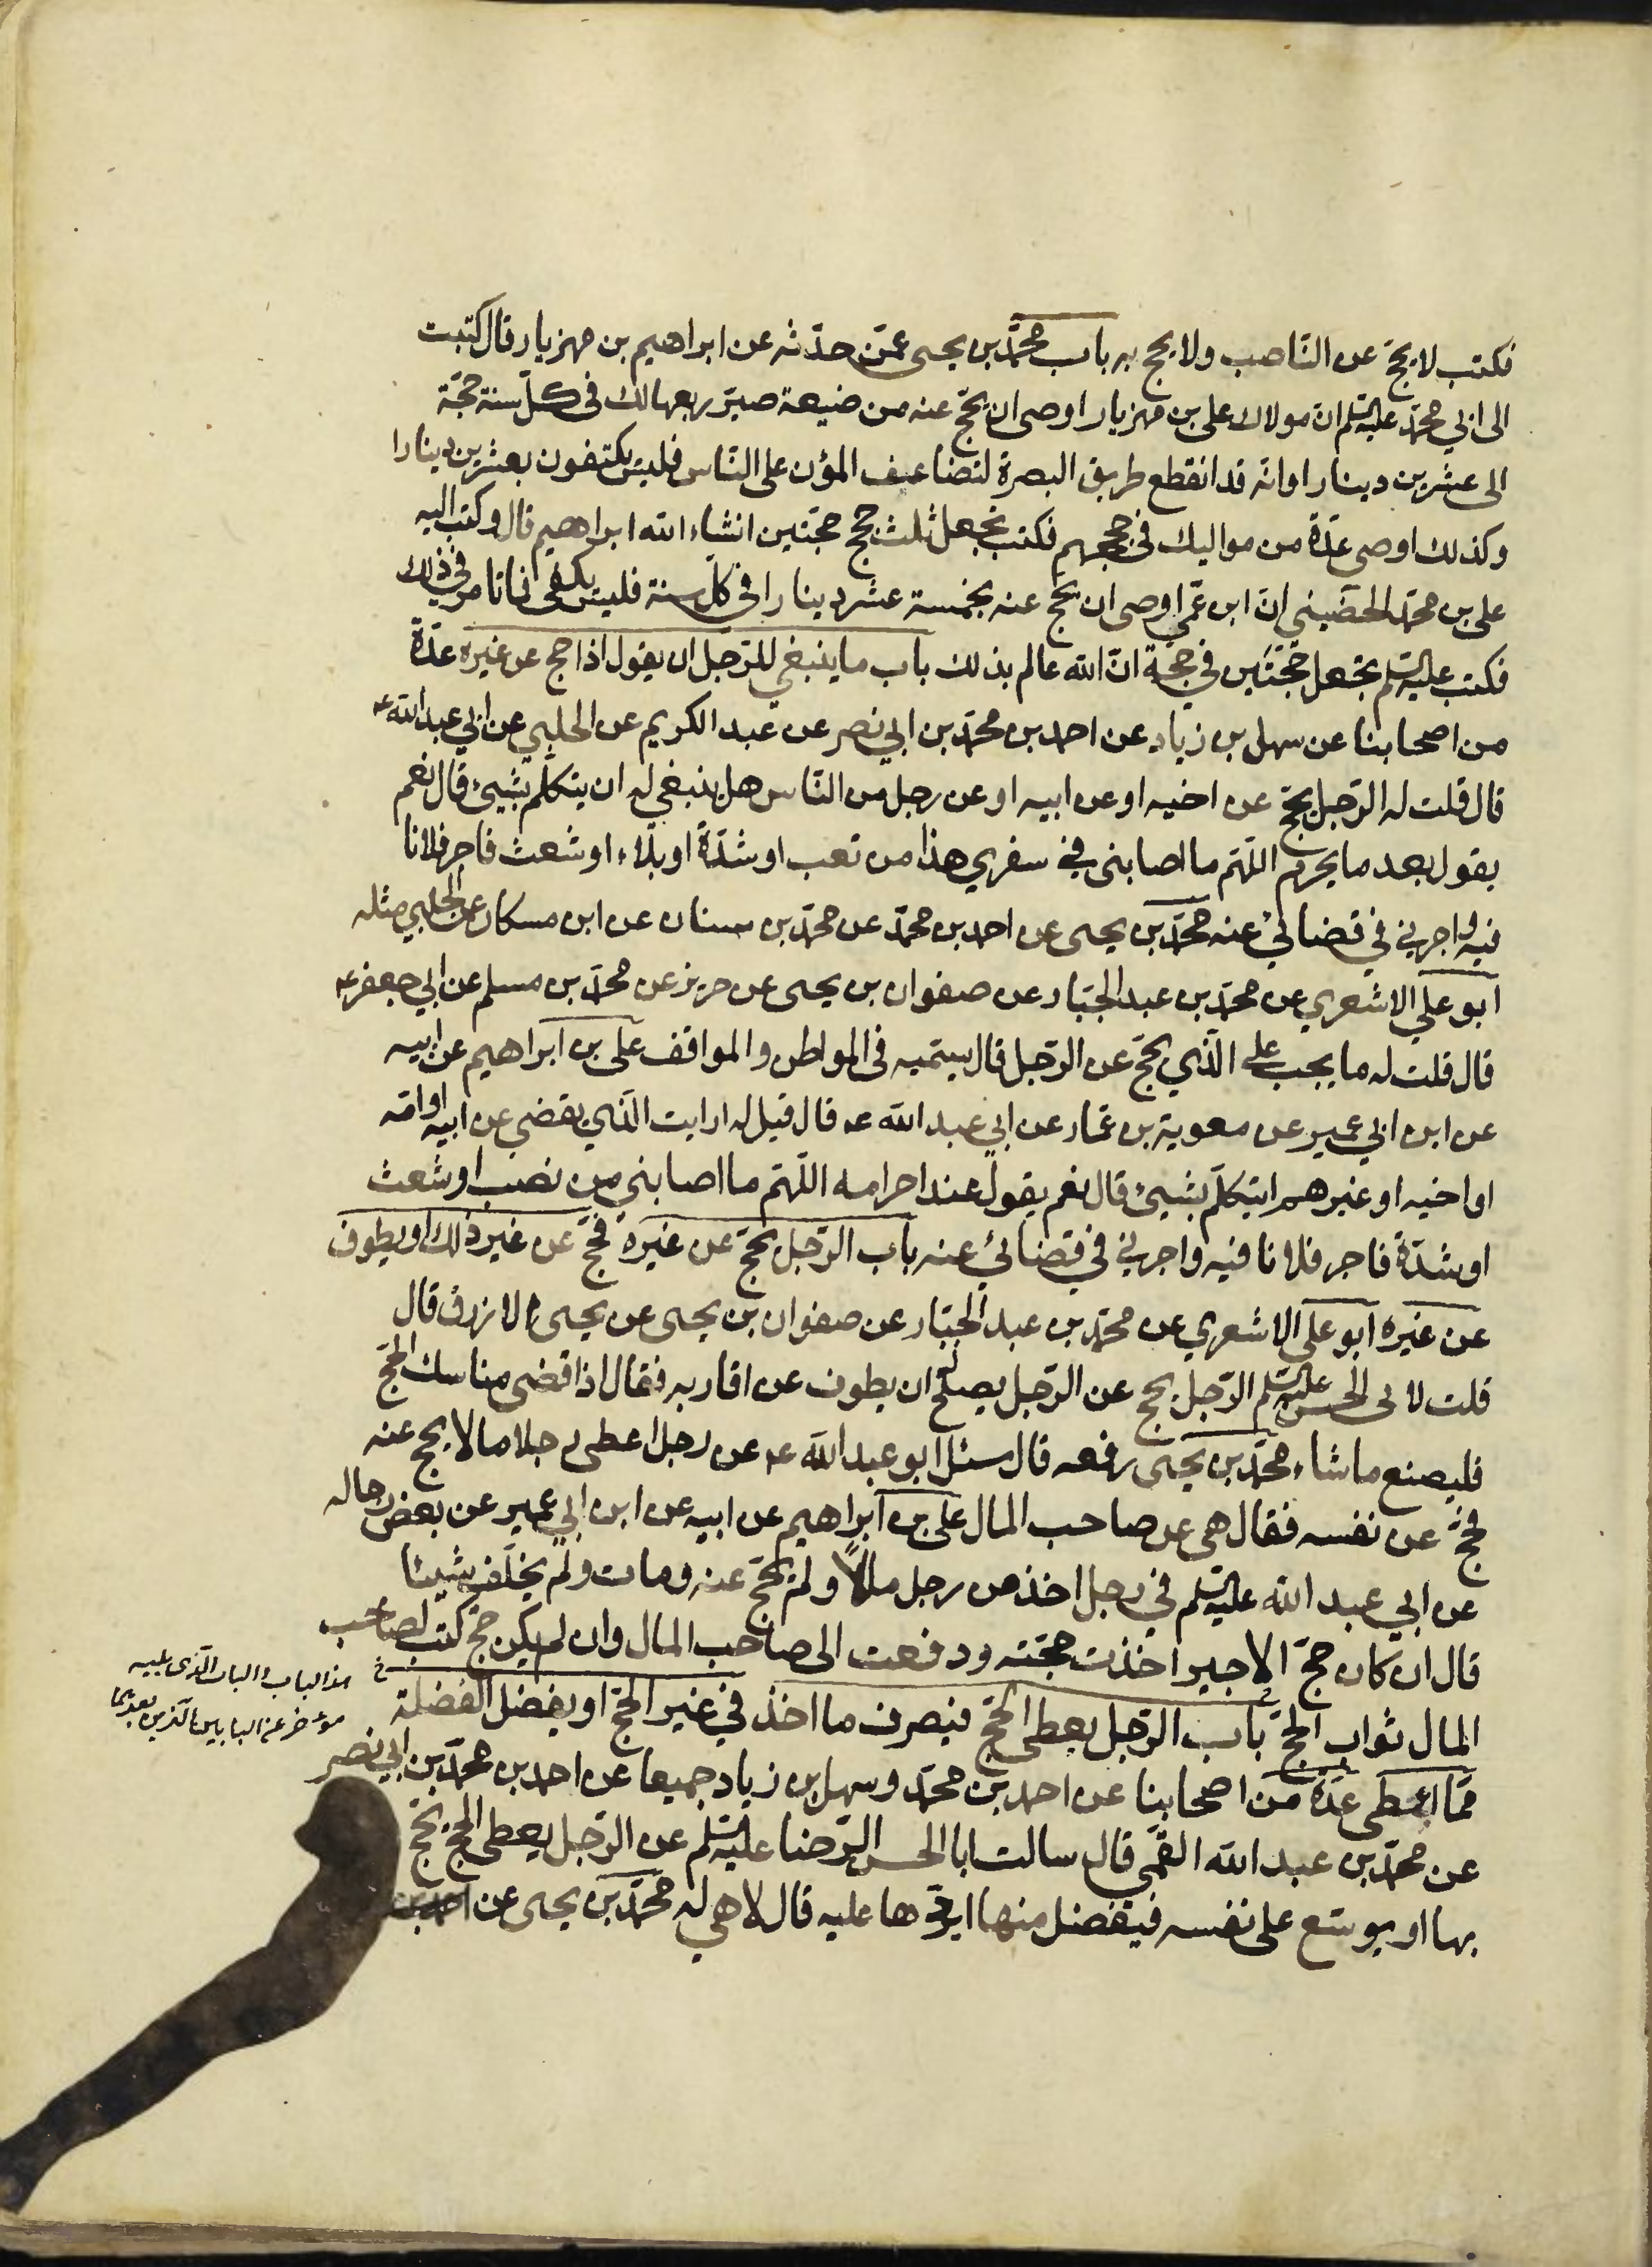 فكتب لا يحجّ عن النّاصب ولا يحج به باب محمّد بن يحيى عمّن حدّثه عن ابراهيم بن مهزيار قال كتبت
الى ابي محمّد عليه السلم انّ مولاك على بن مهزيار اوصى ان يحجّ عنه من ضيعة صيّر ربعها لك فى كلّ سنة حجّة
الى عشرين دينارا وانه قد انقطع طريق البصرة لتضاعيف المؤن على النّاس فليس يكتفون بعشرين دينارا
وكذلك اوصى عدّة من مواليك في حججهم فكتب يجعل ثلث حجج حجّتين انشاء الله ابراهيم قال وكتب اليه
على بن محمّد الحضيني انّ ابن عمّي اوصى ان يحجّ عنه بخمسة عشر دينارا في كلّ سنة فليس يكفى فما تامر في ذلك
فكتب عليه السلم يجعل حجّتين في حجّة انّ الله عالم بذلك باب ما ينبغي للرّجل ان يقول اذا حج عن غيره عدّة
من اصحابنا عن سهل بن زياد عن احمد بن محمّد بن ابي نصر عن عبد الكريم عن الحلبي عن ابي عبد الله ع
قال قلت له الرّجل يحجّ عن اخيه او عن ابيه او عن رجل من النّاس هل ينبغي له ان يتكلّم بشيئ قال نعم
يقول بعد ما يحرم اللّهمّ ما اصابنى في سفري هذا من تعب او شدّة او بلاء او شعث فاجر فلانا
فيه واجرني في قضائي عنه محمّد بن يحيى عن احمد بن محمّد عن محمّد بن سنان عن ابن مسكان عن الحلبي مثله
ابو علي الاشعري عن محمّد بن عبد الجبّار عن صفوان بن يحيى عن حريز عن محمّد بن مسلم عن ابي جعفر ع
قال قلت له ما يجب على الّذي يحجّ عن الرّجل قال يسمّيه فى المواطن والمواقف على بن ابراهيم عن ابيه
عن ابن ابي عمير عن معوية بن عمّار عن ابي عبد الله ع قال قيل له ارايت الّذي يقضي عن ابيه او امّه
او اخيه او غيرهم ايتكلّم بشيئ قال نعم يقول عند احرامه اللّهمّ ما اصابني من نصب او شعث
او شدّة فاجر فلانا فيه واجرني في قضائي عنه باب الرّجل يحجّ عن غيره فحجّ عن غير ذلك او يطوف
عن غيره ابو على الاشعري عن محمّد بن عبد الجبّار عن صفوان بن يحيى عن يحيى الازرق قال
قلت لابى الحسن عليه السلم الرّجل يحج عن الرّجل يصلح له ان يطوف عن اقاربه فقال اذا قضى مناسك الحجّ
فليصنع ما شاء محمّد بن يحيى رفعه قال سئل ابو عبد الله ع عن رجل اعطى رجلا مالا يحج عنه
فحجّ عن نفسه فقال هى عن صاحب المال على بن ابراهيم عن ابيه عن ابن ابي عمير عن بعض رجاله
عن ابي عبد الله عليه السلم في رجل اخذ من رجل مالاً ولم يحجّ عنه ومات ولم يخلّف شيئا
قال ان كان حجّ الاجير اخذت حجّته ودفعت الى صاحب المال وان لم يكن حجّ كتب لصاحب
المال ثواب الحجّ باب الرّجل يعطى الحجّ فيصرف ما اخذ في غير الحجّ او يفضل الفضلة
ممّا اعطى عدّة من اصحابنا عن احمد بن محمّد وسهل بن زياد جميعا عن احمد بن محمّد بن ابي نصر
عن محمّد بن عبد الله القمّي قال سالت ابا الحسن الرّضا عليه السلم عن الرّجل يعطى الحجّ يحجّ
بها او يوسّع على نفسه فيفضل منها ايردّها عليه قال لا هي له محمّد بن يحيى عن احمد بن
هذا الباب والباب الّذى يليه
مؤخر عن البابين الّذين بعدهما